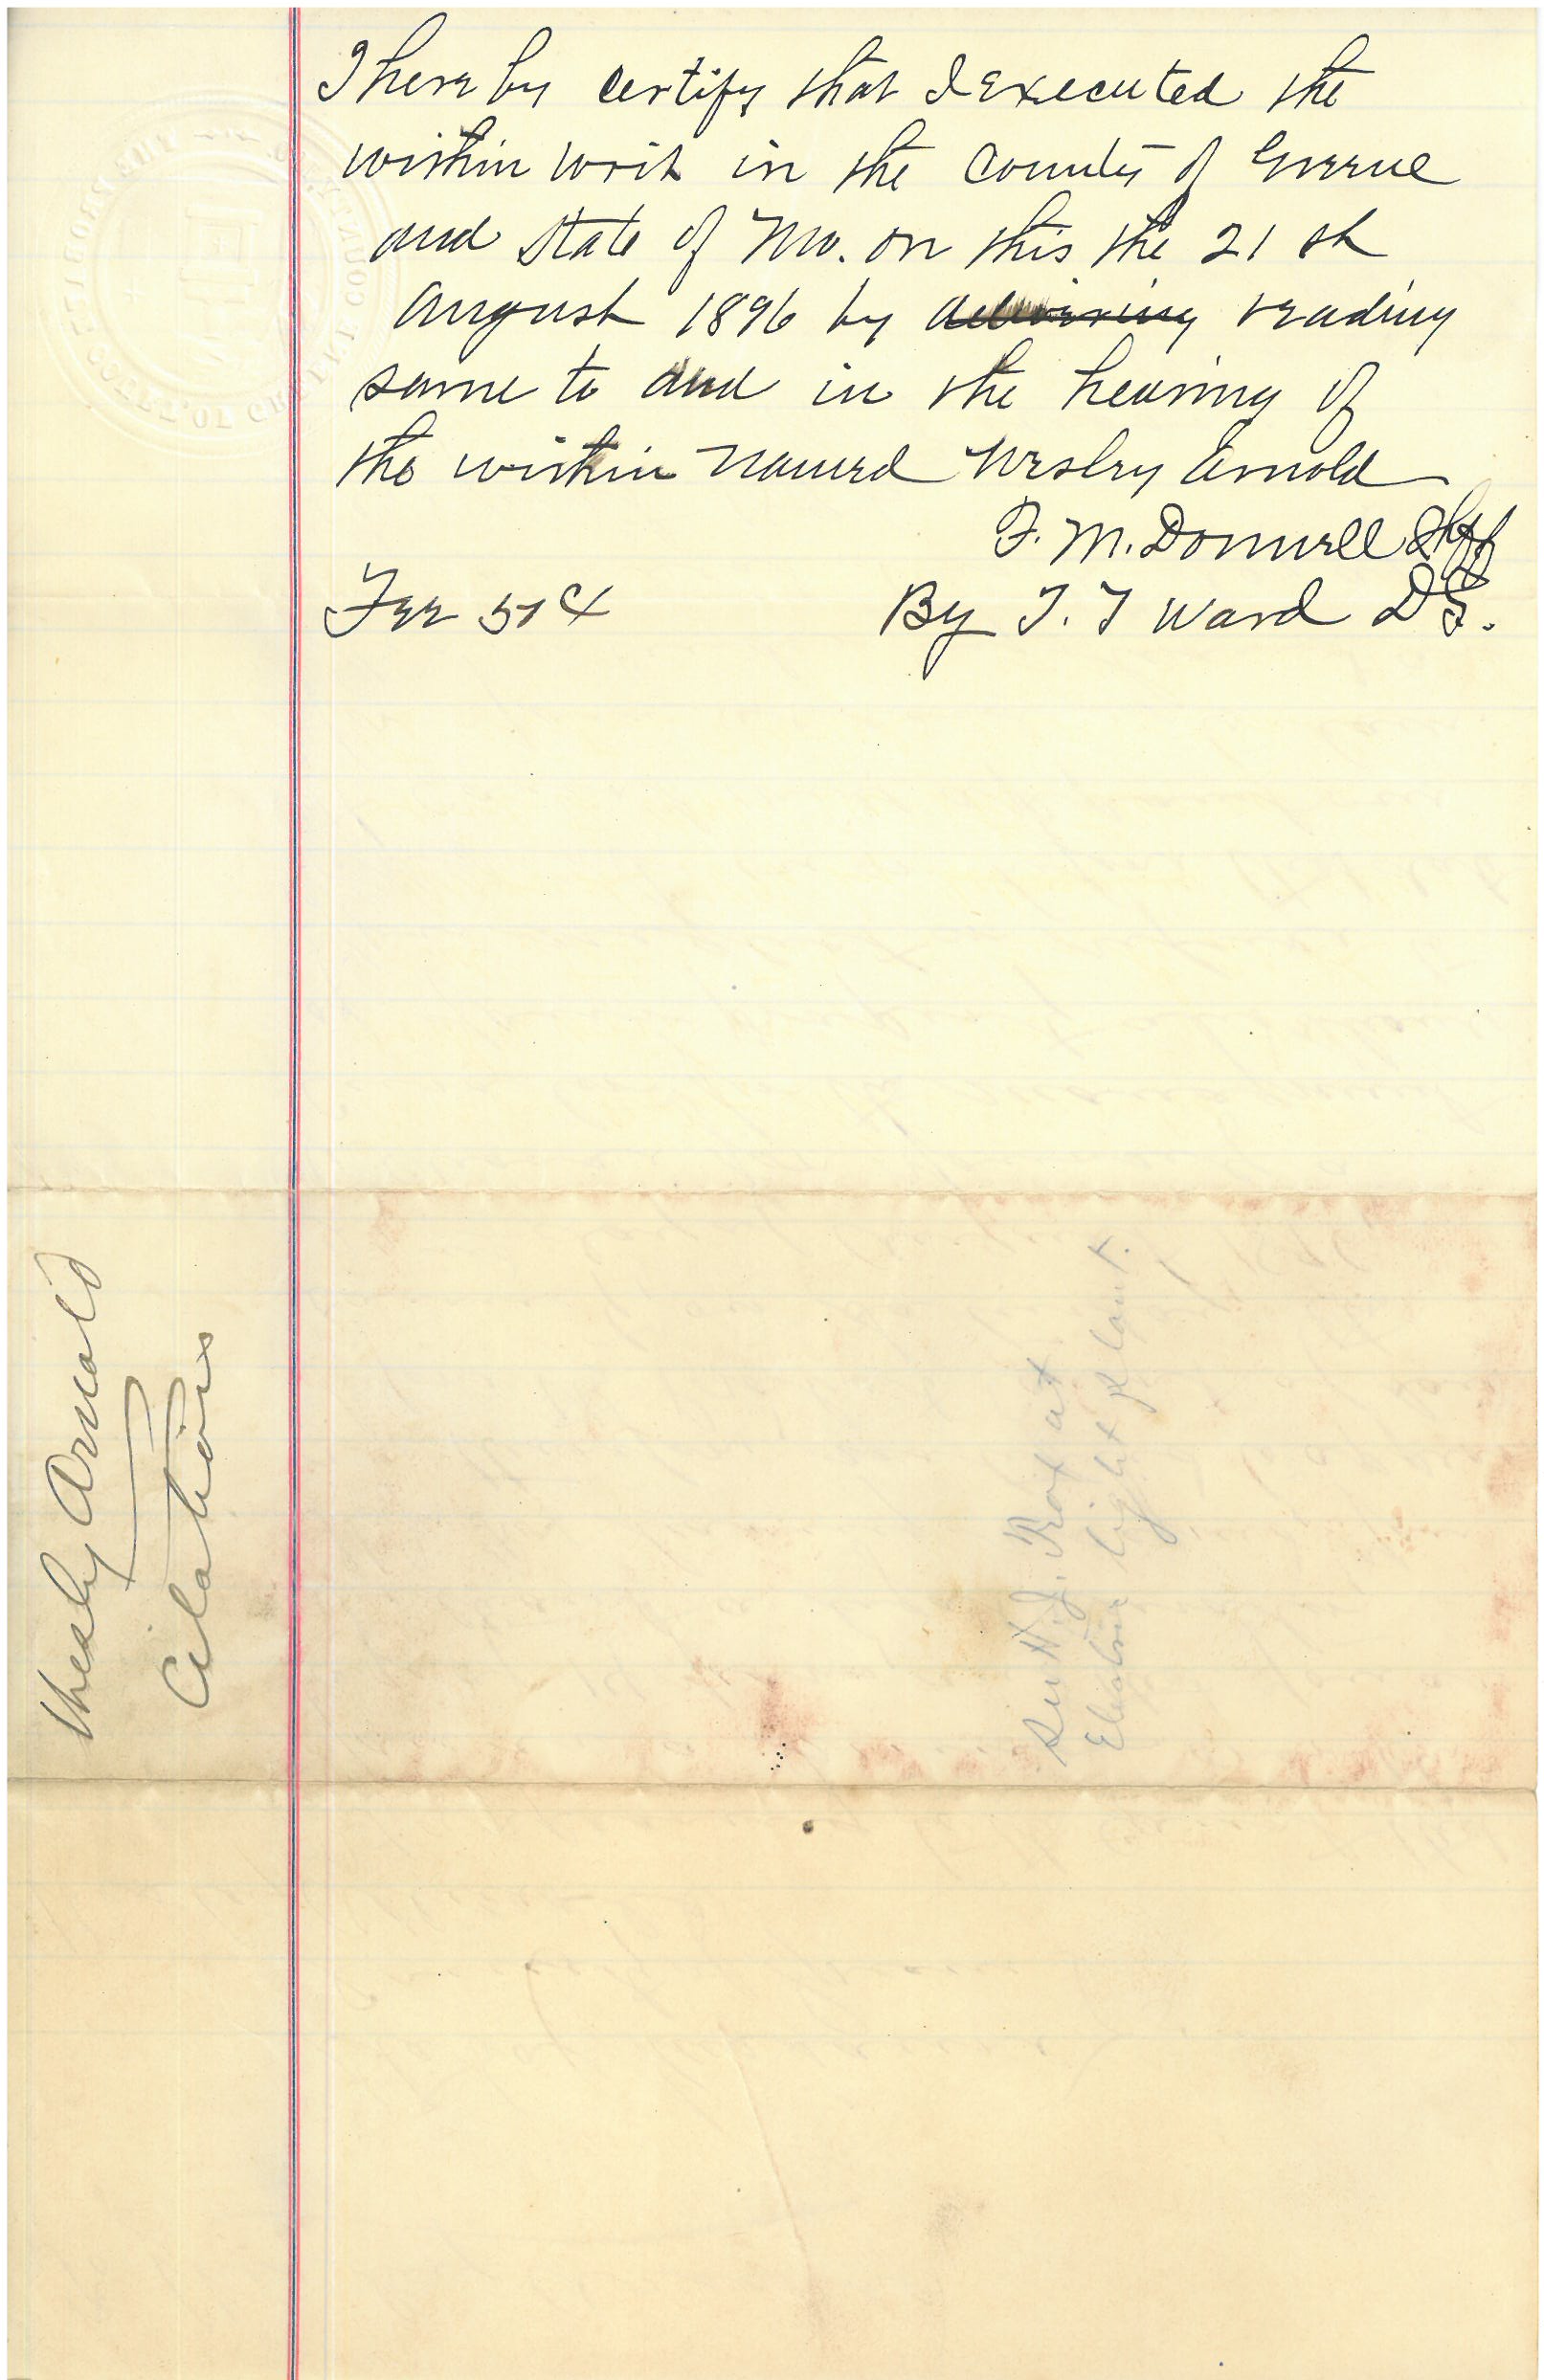 I hereby certify that I Executed the
within writ in the County of Greene
and State of Mo. on this the 21 st
August 1896 by delivering reading
same to and in the hearing of
the within named Wesley Arnold
F. M. Donnell Shff
By T. T Ward D S.
Fee 50¢
Wesly Arnold
Citation
at
Electric light plant.